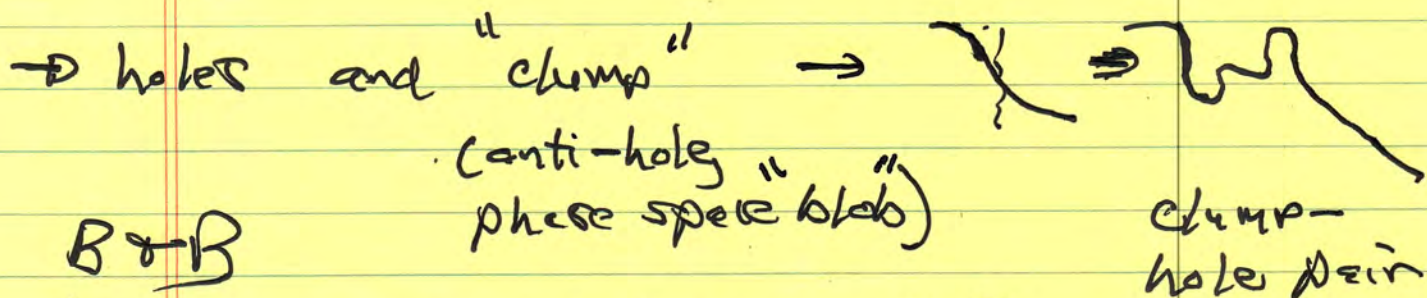 → holes and "clump" → ⇒
(anti-hole,
phase space "blob")
clump-
hole pair
B+B